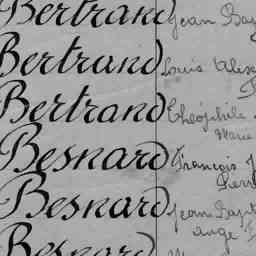 Bertrand Jean Bap
Bertrand Louis Alex
Bertrand Théophile
Marie
Besnard François J
Pierr
Besnard Jean Bapt
ange
Besnard